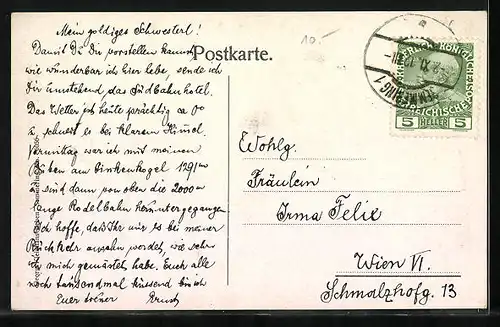 Mein goldiges Schwesterl!
Damit Du Dir vorstellen kannst,
wie wunderbar ich hier lebe, sende ich
Dir umstehend das Südbahnhotel.
Das Wetter ist heute prächtig ca 0°
u. schneit es bei klarem Himmel.
Vormittag war ich mit meinen
Buben am Pinkenkogel 1291 m
u sind dann von oben die 2000 m
lange Rodelbahn heruntergegangen.
Ich hoffe, daß Ihr mir es bei meiner
Rückkehr ansehn werdet, wie sehr
ich mich gemästet habe. Euch alle
noch tausendmal küssend bin ich
Euer treuer Ernst
Postkarte.
10.-
SEMMERING 1
5 HELLER 5
Wohlg.
Fräulein
Irma Felix
Wien VI.
Schmalzhofg. 13